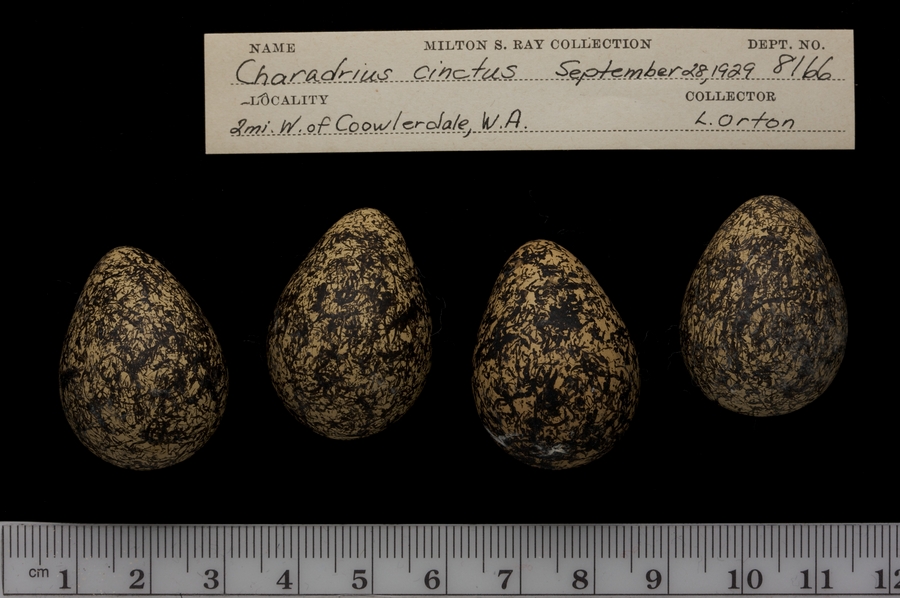 NAME MILTON S. RAY COLLECTION DEPT. NO.
Charadrius cinctus September 28, 1929 8166
LOCALITY COLLECTOR
2mi. W. of Coowlerdale, W.A. L. Orton
cm 1 2 3 4 5 6 7 8 9 10 11 12